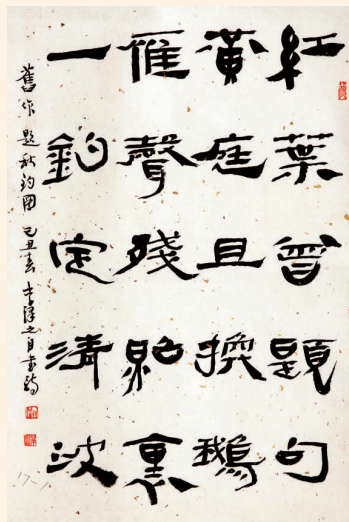 紅葉曾題句
黃庭且換鵝
雁聲殘照裏
一釣定清波
舊作題秋釣圖 己丑春